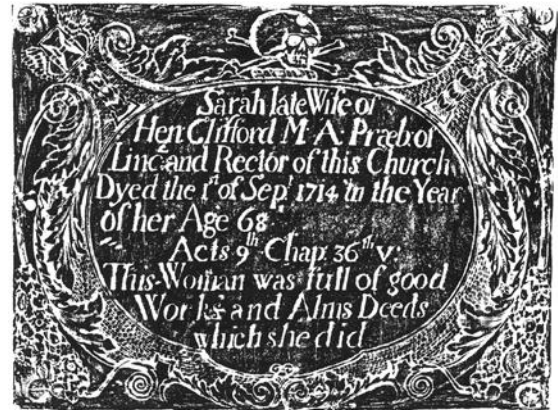 Sarah late Wife of
Hen Clifford M·A· Præb: of
Linc: and Rector of this Church
Dyed the 1st of Sept 1714 in the Year
of her Age 68
Acts 9th Chap: 36th v:
This Woman was full of good
Works and Alms Deeds
which she did